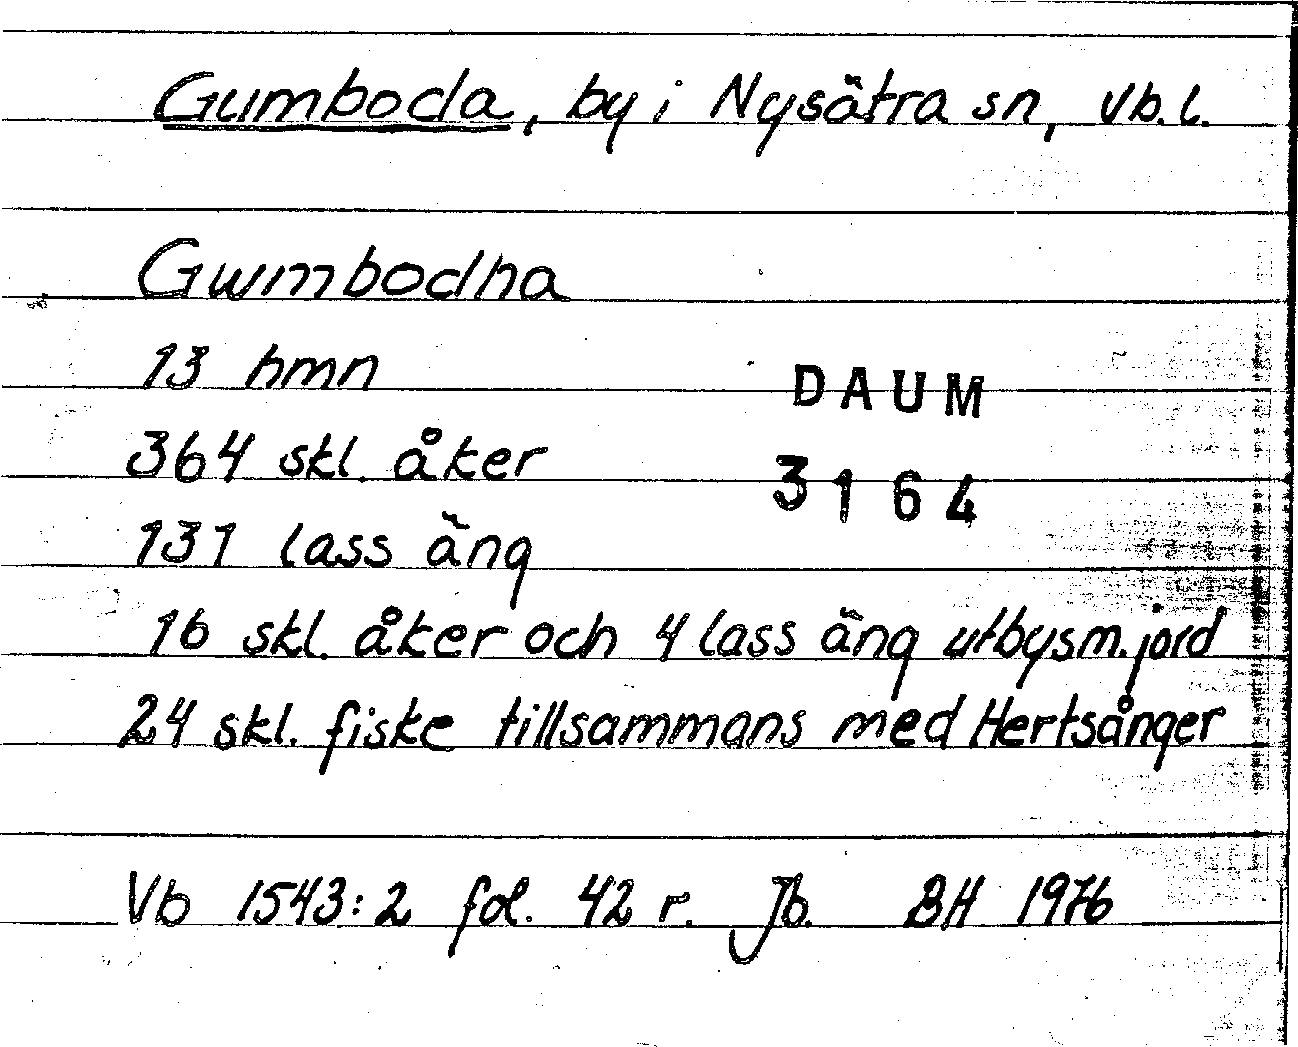 Gumboda, by i Nysätra sn, Vb. l.
Gwmbodha
13 hmn
DAUM
364 skl. åker
3164
131 lass äng
16 skl. åker och 4 lass äng utbysm.jord
24 skl. fiske tillsammans med Hertsånger
Vb 1543:2 fol. 42 r. Jb. BH 1976